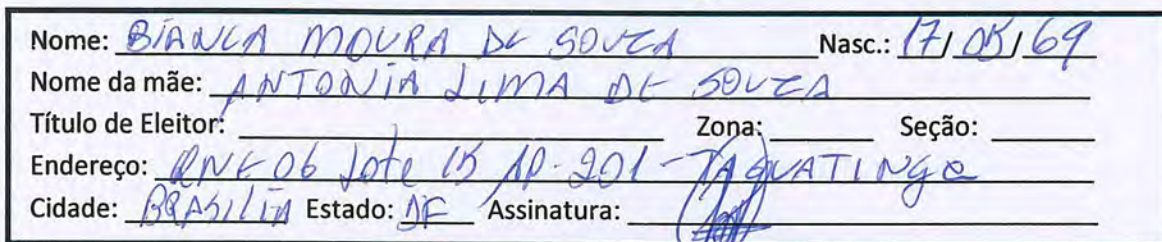 Nome: BIANCA MOURA DE SOUZA Nasc.: 17/05/69
Nome da mãe: ANTONIA LIMA DE SOUZA
Título de Eleitor: Zona: Seção:
Endereço: QNE 06 lote 15 AP-201 - TAGUATINGA
Cidade: BRASILIA Estado: DF Assinatura: